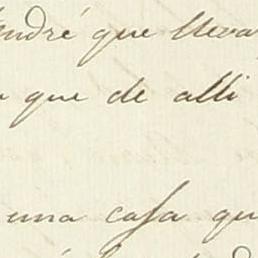 André que lleva
que de alli
una casa qu